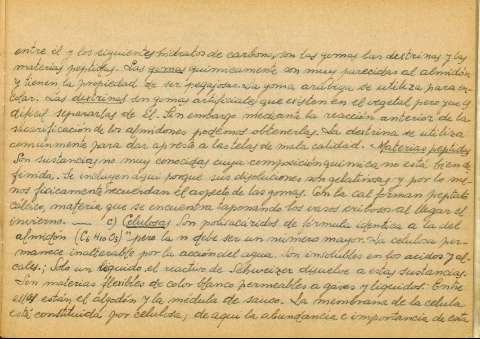 entre él y los siguientes hidratos de carbono, son las gomas las dextrinas y las
materias peptidas. Las gomas químicamente son muy parecidas al almidón
y tienen la propiedad de ser pegajosas. La goma arábiga se utiliza para en-
colar. Las dextrinas son gomas artificiales que existen en el vegetal pero que es
dificil separarlas de él. Sin embargo mediante la reacción anterior de la
sacarificación de los almidones podemos obtenerlas. La dextrina se utiliza
comúnmente para dar apresto a las telas de mala calidad. Materias peptidas
Son sustancias no muy conocidas cuya composición química no está bien de-
finida. Se incluyen aquí porque sus disoluciones son gelatinosas y por lo me-
nos físicamente recuerdan el aspecto de las gomas. Con la cal forman peptato
cálcico, materia que se encuentra taponando los vasos cribosos al llegar el
invierno. — c) Celulosas Son polisacáridos de fórmula identica a la del
almidón (C6 H10 O5)n pero la n debe ser un numero mayor. La celulosa per-
manece inalterable por la acción del agua. Son insolubles en los acidos y al-
calis; Solo un líquido el reactivo de Schweizer disuelve a estas sustancias.
Son materias flexibles de color blanco permeables a gases y liquidos. Entre
ellas están el algodón y la médula de sauco. La membrana de la celula
está constituida por celulosa; de aquí la abundancia e importancia de esta